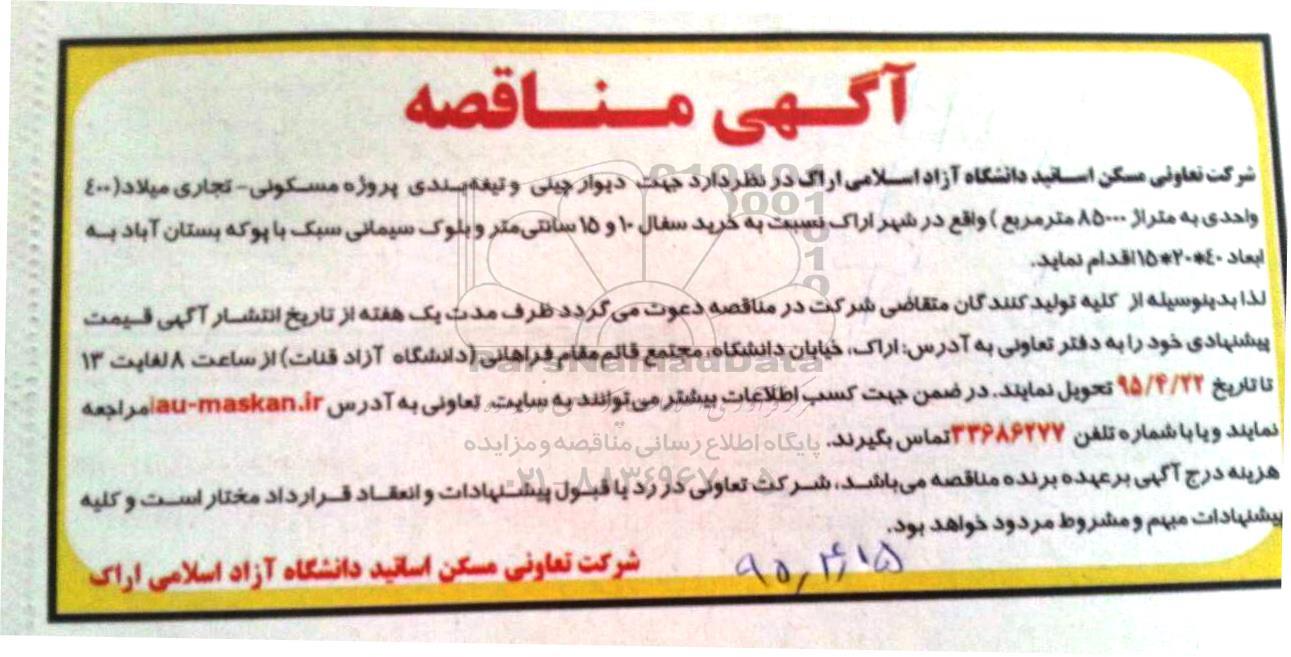 آگهی مناقصه
شرکت تعاونی مسکن اساتید دانشگاه آزاد اسلامی اراک در نظر دارد جهت دیوار چینی و تیغه بندی پروژه مسکونی - تجاری میلاد (۴۰۰
واحدی به متراژ ۸۵۰۰۰ مترمربع ) واقع در شهر اراک نسبت به خرید سفال ۱۰ و ۱۵ سانتی‌متر و بلوک سیمانی سبک با پوکه بستان آباد به
ابعاد ۴۰*۲۰*۱۵ اقدام نماید.
لذا بدینوسیله از کلیه تولید کنندگان متقاضی شرکت در مناقصه دعوت می گردد ظرف مدت یک هفته از تاریخ انتشار آگهی قیمت
پیشنهادی خود را به دفتر تعاونی به آدرس: اراک، خیابان دانشگاه، مجتمع قائم مقام فراهانی (دانشگاه آزاد قنات) از ساعت ۸ لغایت ۱۳
تا تاریخ ۹۵/۴/۲۲ تحویل نمایند. در ضمن جهت کسب اطلاعات بیشتر می‌توانند به سایت تعاونی به آدرس iau-maskan.ir مراجعه
نمایند و یا با شماره تلفن ۳۳۶۸۶۲۷۷ تماس بگیرند.
هزینه درج آگهی بر عهده برنده مناقصه می‌باشد، شرکت تعاونی در رد یا قبول پیشنهادات و انعقاد قرارداد مختار است و کلیه
پیشنهادات مبهم و مشروط مردود خواهد بود.
شرکت تعاونی مسکن اساتید دانشگاه آزاد اسلامی اراک
۹۵,۴,۱۵
ParsNamadData
پایگاه اطلاع رسانی مناقصه و مزایده
۰۲۱-۸۸۳۴۹۶۷۰-۵